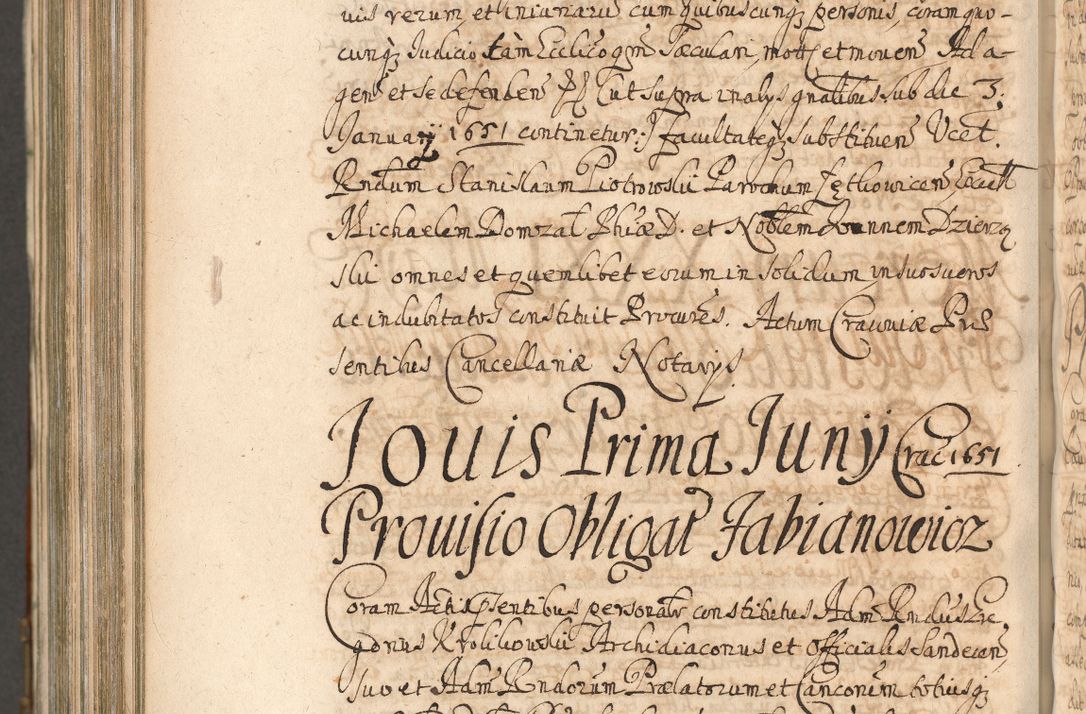 uis rerum et iniuriarū cum quibuscunq; personis, coram quo-
cunq; Iudicio tàm Ecclīco qm̄ sæculari, mott et mouen Ad a-
gen et se defenden ut supra in alys gnālibus sub die 3.
January 1651 continetur:) facultateq; substituen Vcet.
Rndum Stanislaum Piotrowski Parochum Jętkowicen Excell
Michaelem Domzal Phiæ D. et Noblem Joannem Dzierzą
ski omnes et quemlibet eorum in solidum in suos ueros
ac indubitatos constituit Procures. Actum Crauouiæ Præ
sentibus Cancellariæ Notarys
Jouis Prima Juny Crac 1651.
Prouisio Obligat Fabianowicz
Coram Actis psentibus personalr constitutus Adm Rndus Gre
gorius Krolikowski Archidiaconus et Officialis Sandecen
suo et Adm Rndorum Prælatorum et Canconem totiusq;